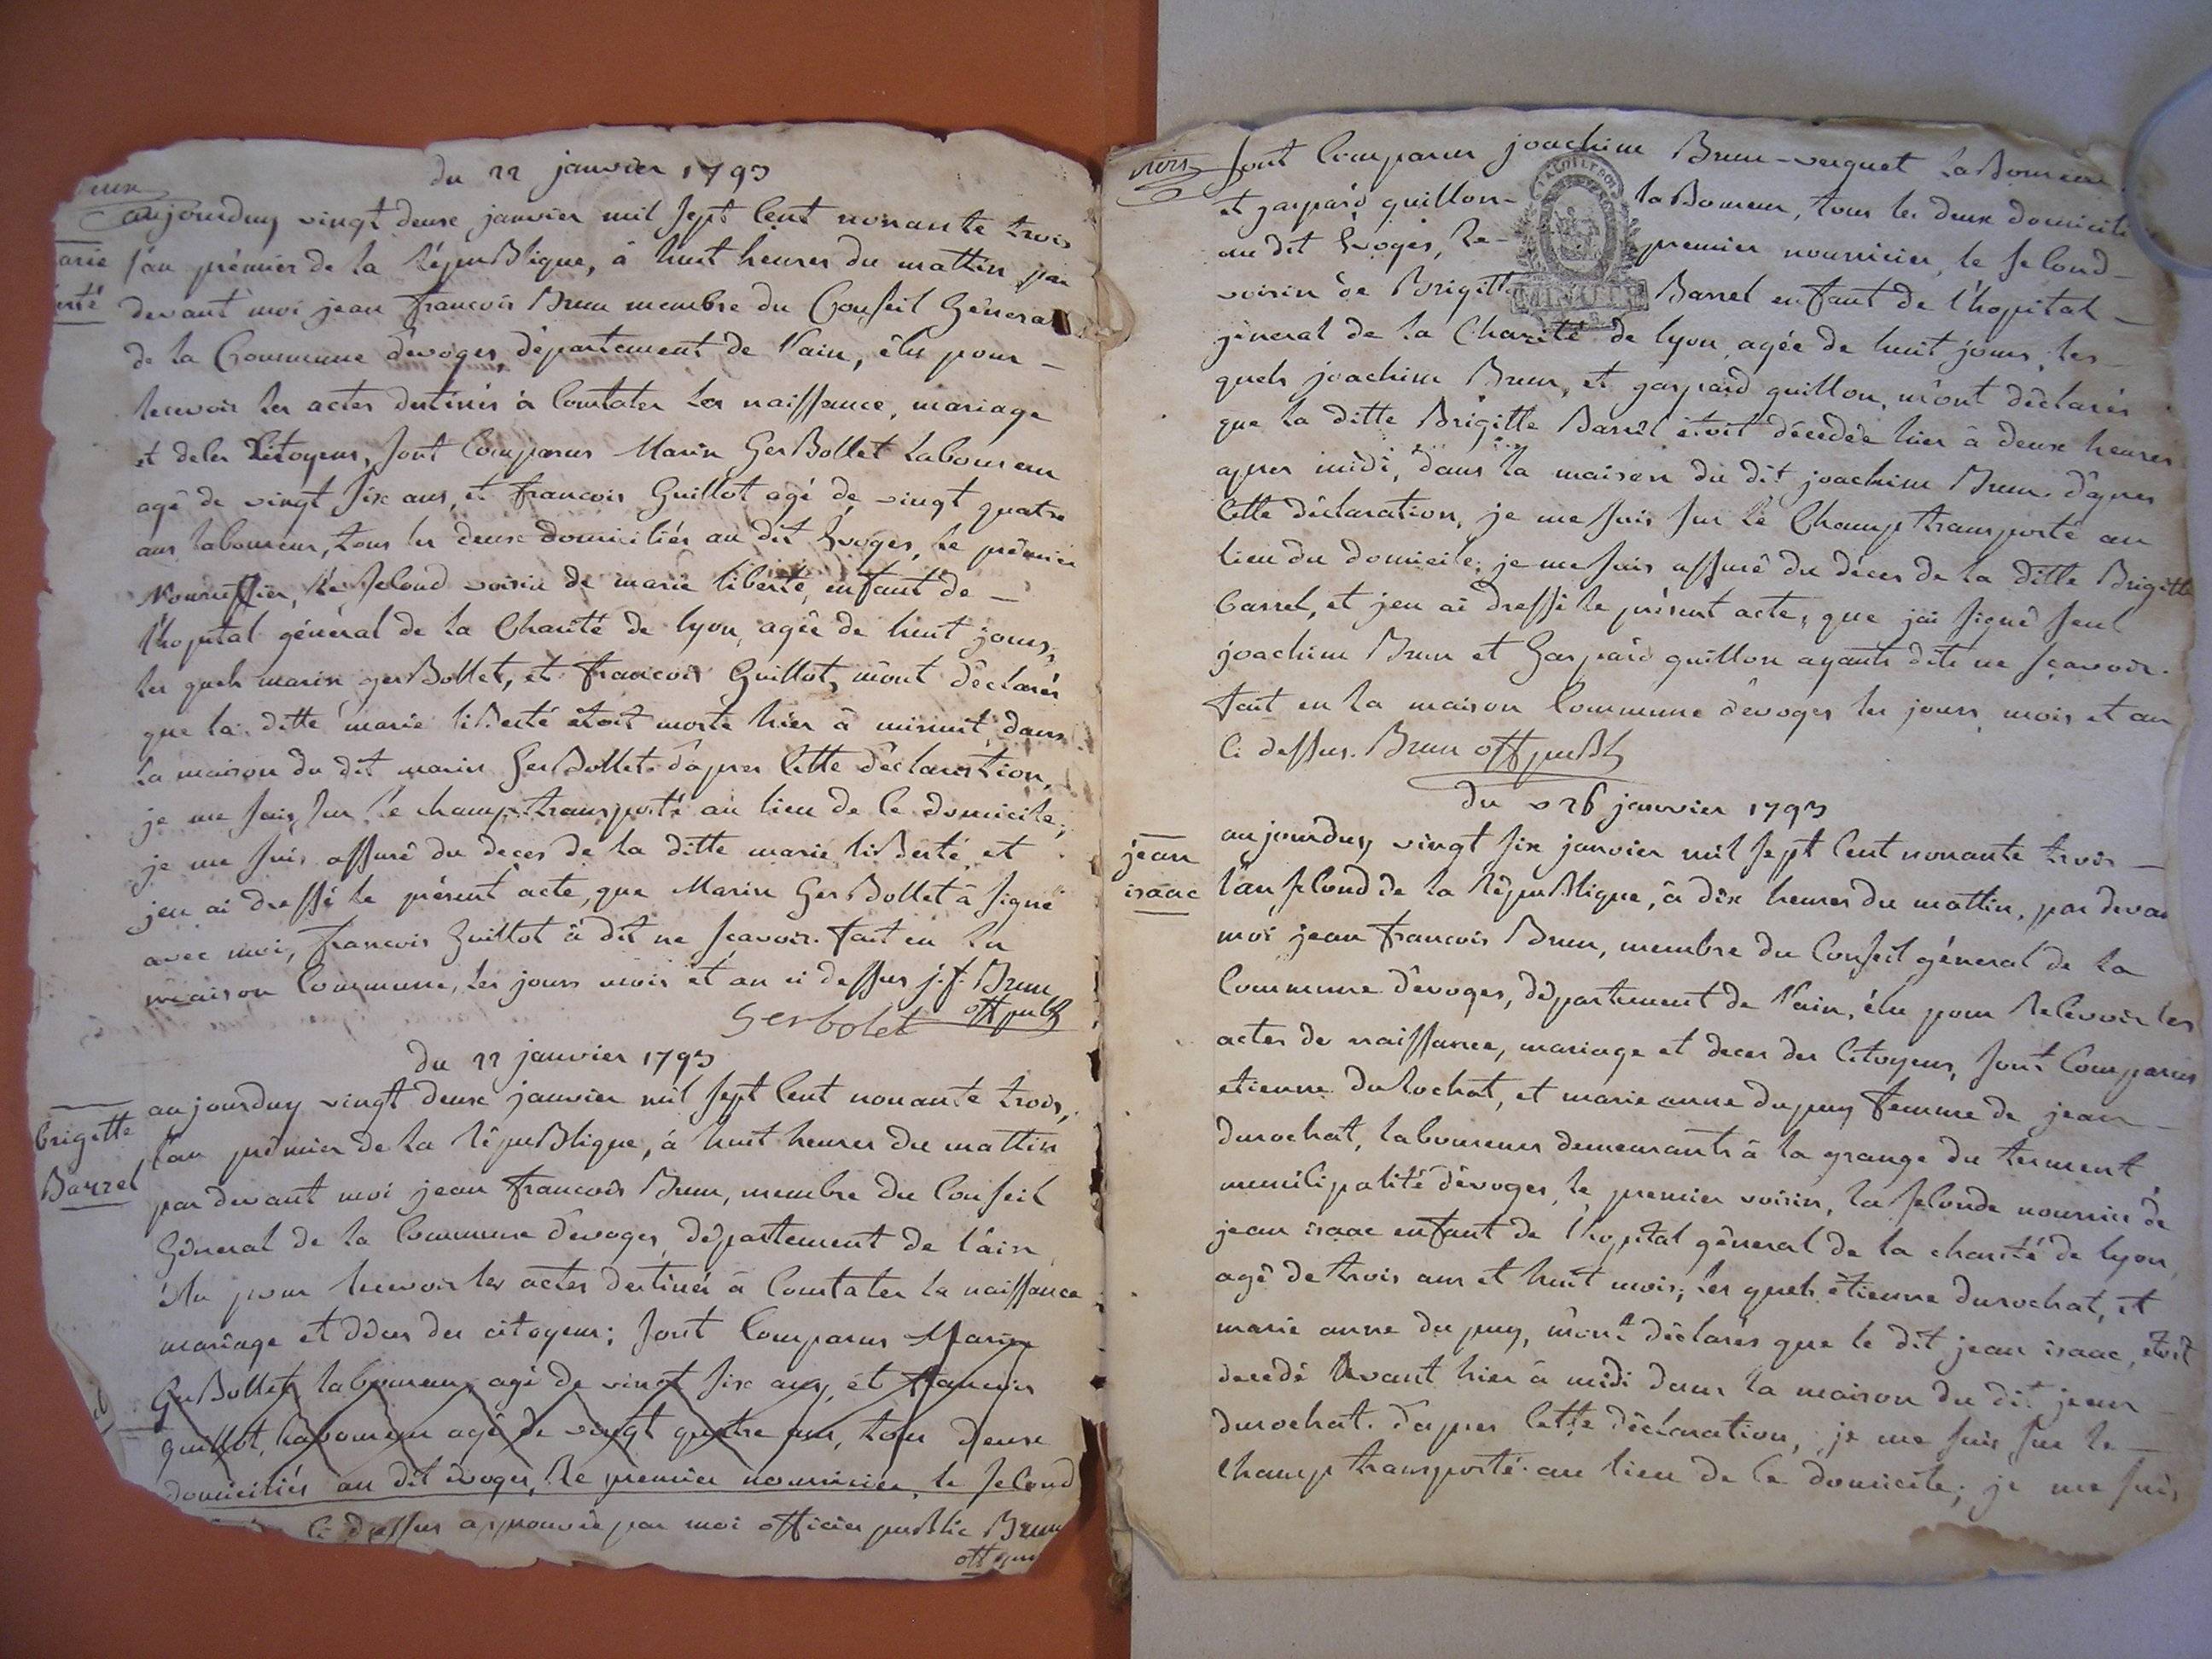 du 22 janvier 1793
eux
aujourduy vingt deuse janvier mil sept cent nonante trois
arie
l'an prémier de la république, à huit heures du mattin par
erté
devant moi jean francois Brun membre du Conseil Géneral
de la Commune dévoges, département de l'ain, élu pour –
recevoir les actes déstinés à Constater les naissance, mariage
et deces Citoyens, sont Comparus Marin GerBollet Laboureur
agé de vingt six ans, et francois Guillot agé de vingt quatre
ans laboureur, tous les deuse domiciliés au dit Evoges, le prémier
Nourissier, le second voisin de marie liberté, enfant de –
l'hopital général de la Charité de lyon, agée de huit jours,
les quels marin gerBollet, et francois Guillot, m'ont déclarés
que la ditte marie liBerté étoit morte hier à minuit, dans
la maison du dit marin GerBollet d'apres Cette déclaration,
je me suis, sur le champ transporté au lieu de ce domicile,
je me suis assuré du deces de la ditte marie liBerté et
jen ai dressé le présent acte, que Marin GerBollet à signé
avec moi, francois Guillot à dit ne scavoir. fait en la
maison Commune, les jours mois et an ci dessus j. f. Brun
off publ
Gerbolet
du 22 janvier 1793
aujourduy vingt deuse janvier mil sept Cent nonante trois,
Brigette
Barrel
l'an prémier de la république, à huit heures du mattin
par devant moi jean francois Brun, membre du Conseil
Géneral de la Commune d'evoges, département de l'ain
élu pour recevoir les actes destinés à Constater la naissance
mariage et déces des citoyens; sont Comparus Marin
GerBollet, laboureur, agé de vingt six ans, et francois
guillot, laboureur agé de vingt quatre ans, tous deuse
domiciliés au dit evoges, le premier nourricier, le second
Ci dessus approuvée par moi officier public Brun
off pu
rois
sont Comparus joachim Brun-verguet laBoureur
et gaspard guillon – laBoureur, tous les deux domicili
au dit Evoges, le – premier nourricier, le second –
voisin de Brigitte Barrel enfant de l'hopital –
géneral de la Charité de lyon, agée de huit jours, les –
quels joachim Brun, et gaspard guillon, m'ont déclarés
que la ditte Brigitte Barrel étoit décedée hier à deux heures
apres midi, dans la maison du dit joachim Brun. d'apres
Cette déclaration, je me suis sur le Champ transporté au
lieu du domicile; je me suis assuré du déces de la ditte Brigitte
Barrel, et jen ai dressé le présent acte, que jai signé seul
joachim Brun et Gaspard guillon ayants dits ne scavoir.
fait en la maison Commune d'evoges les jours mois et an
Ci dessus. Brun off publ
du 26 janvier 1793
aujourduy vingt six janvier mil sept Cent nonante trois –
jean
isaac
l'an second de la république, à dix heures du mattin, par devan
moi jean francois Brun, membre du Conseil général de la
Commune d'evoges, département de l'ain, élu pour recevoir les
actes de naissance, mariage et deces des Citoyens, sont Comparus
etienne duRochat, et marie anne dupuy femme de jean –
durochat, laboureurs demeurants à la grange du terment,
municipalité dévoges, le premier voisin, la seconde nourrice de
jean isaac enfant de l'hopital géneral de la charité de lyon,
agé de trois ans et huit mois, les quels étienne durochat, et
marie anne du puy, m'ont déclarés que le dit jean isaac, etoit
decedé avant hier à midi dans la maison du dit jean
durochat. d'apres Cette déclaration, je me suis sur le –
champ transporté au lieu de Ce domicile; je me suis